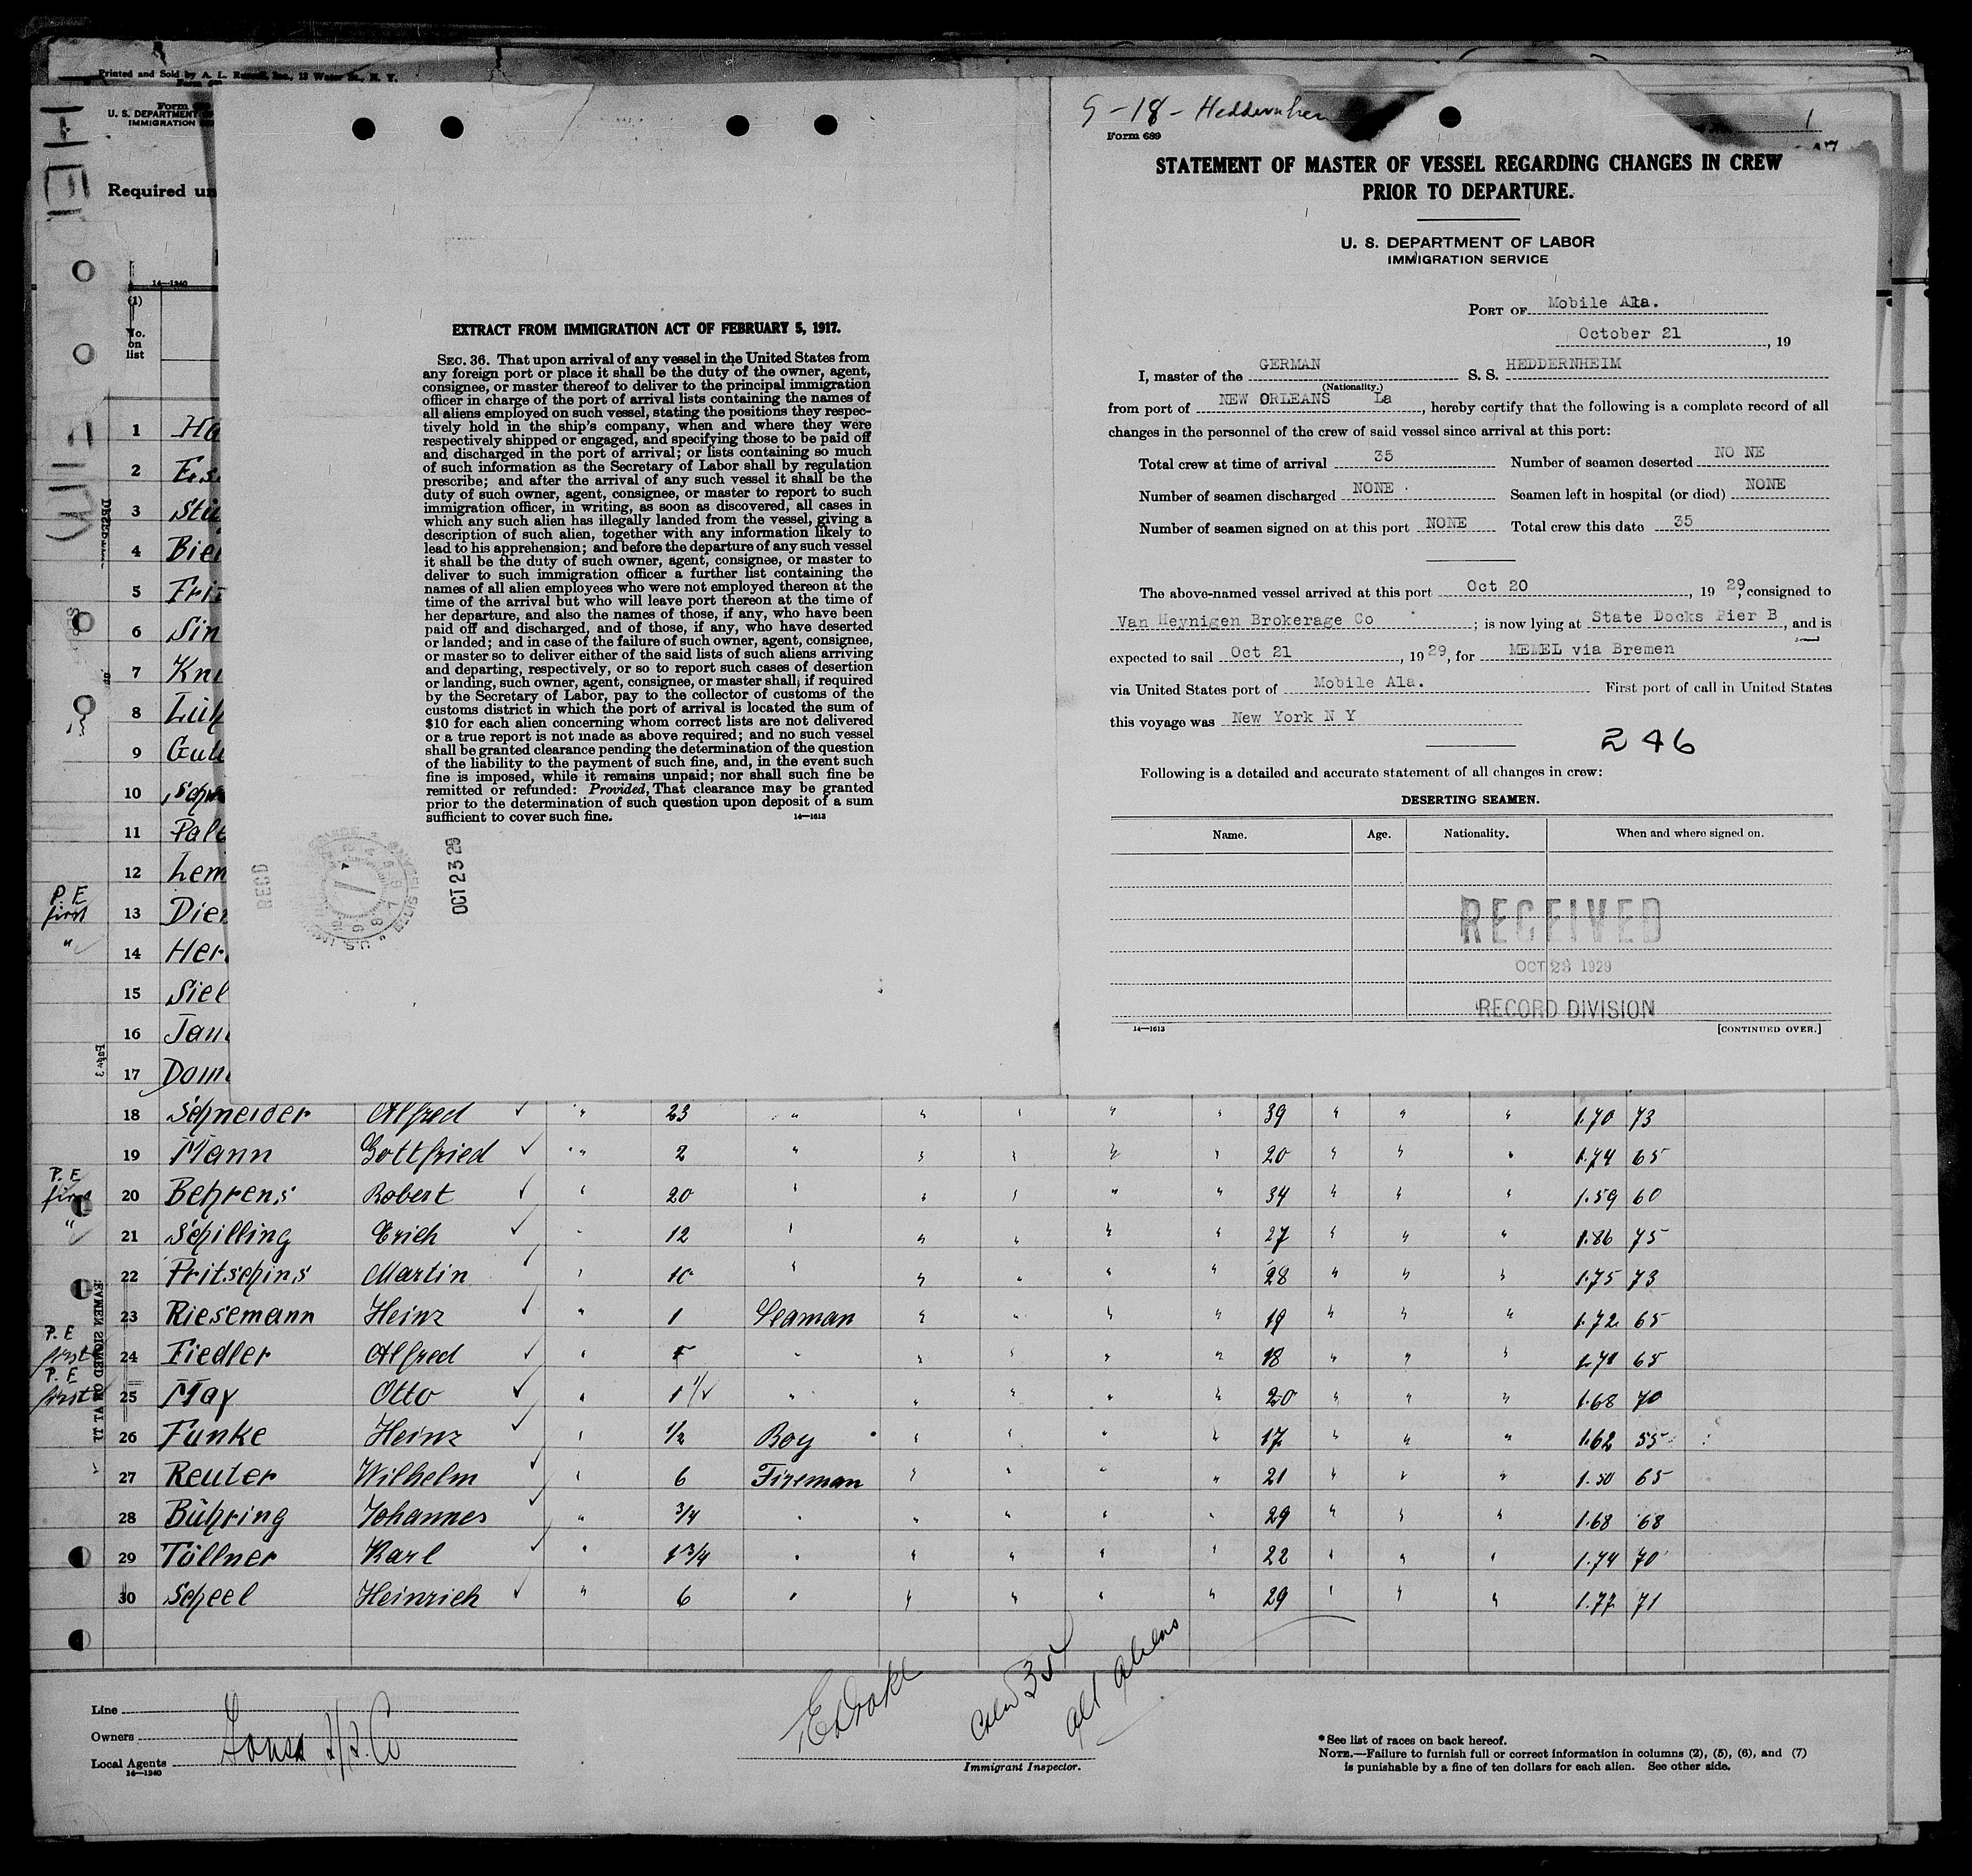 Printed and Sold by A. L. Russell, Inc., 13 Water St., N. Y.
U. S. DEPARTMENT
IMMIGRATION
Required un
14—1240
(1)
No.
on
list
1 Ha
2 Ess
3 Stü
4 Bie
5 Fri
6 Sin
7 Kn
8 Lüh
9 Gut
10 Sch
11 Pal
12 Lem
P. E
first 13 Die
" 14 Her
15 Siel
16 Jan
17 Dom
EXTRACT FROM IMMIGRATION ACT OF FEBRUARY 5, 1917.
SEC. 36. That upon arrival of any vessel in the United States from
any foreign port or place it shall be the duty of the owner, agent,
consignee, or master thereof to deliver to the principal immigration
officer in charge of the port of arrival lists containing the names of
all aliens employed on such vessel, stating the positions they respec-
tively hold in the ship's company, when and where they were
respectively shipped or engaged, and specifying those to be paid off
and discharged in the port of arrival; or lists containing so much
of such information as the Secretary of Labor shall by regulation
prescribe; and after the arrival of any such vessel it shall be the
duty of such owner, agent, consignee, or master to report to such
immigration officer, in writing, as soon as discovered, all cases in
which any such alien has illegally landed from the vessel, giving a
description of such alien, together with any information likely to
lead to his apprehension; and before the departure of any such vessel
it shall be the duty of such owner, agent, consignee, or master to
deliver to such immigration officer a further list containing the
names of all alien employees who were not employed thereon at the
time of the arrival but who will leave port thereon at the time of
her departure, and also the names of those, if any, who have been
paid off and discharged, and of those, if any, who have deserted
or landed; and in case of the failure of such owner, agent, consignee,
or master so to deliver either of the said lists of such aliens arriving
and departing, respectively, or so to report such cases of desertion
or landing, such owner, agent, consignee, or master shall, if required
by the Secretary of Labor, pay to the collector of customs of the
customs district in which the port of arrival is located the sum of
$10 for each alien concerning whom correct lists are not delivered
or a true report is not made as above required; and no such vessel
shall be granted clearance pending the determination of the question
of the liability to the payment of such fine, and, in the event such
fine is imposed, while it remains unpaid; nor shall such fine be
remitted or refunded: Provided, That clearance may be granted
prior to the determination of such question upon deposit of a sum
sufficient to cover such fine. 14—1613
RECD
OCT 23 29
9-18- Heddernheim
1
Form 689
STATEMENT OF MASTER OF VESSEL REGARDING CHANGES IN CREW
PRIOR TO DEPARTURE.
U. S. DEPARTMENT OF LABOR
IMMIGRATION SERVICE
PORT OF Mobile Ala.
October 21, 19
I, master of the GERMAN S. S. HEDDERNHEIM
(Nationality.)
from port of NEW ORLEANS La, hereby certify that the following is a complete record of all
changes in the personnel of the crew of said vessel since arrival at this port:
Total crew at time of arrival 35 Number of seamen deserted NO NE
Number of seamen discharged NONE Seamen left in hospital (or died) NONE
Number of seamen signed on at this port NONE Total crew this date 35
The above-named vessel arrived at this port Oct 20, 1929, consigned to
Van Heynigen Brokerage Co; is now lying at State Docks Pier B, and is
expected to sail Oct 21, 1929, for MEMEL via Bremen
via United States port of Mobile Ala. First port of call in United States
this voyage was New York N Y
246
Following is a detailed and accurate statement of all changes in crew:
DESERTING SEAMEN.
Name. Age. Nationality. When and where signed on.
RECEIVED
OCT 23 1929
RECORD DIVISION
14—1613 [CONTINUED OVER.]
18 Schneider Alfred ✓ " 23 " " " " " 39 " " " 1.70 73
19 Mann Gottfried ✓ " 2 " " " " " 20 " " " 1.74 65
P. E
first 20 Behrens Robert ✓ " 20 " " " " " 34 " " " 1.59 60
" 21 Schilling Erich ✓ " 12 " " " " " 27 " " " 1.86 75
22 Pritschins Martin ✓ " 10 " " " " " 28 " " " 1.75 73
23 Riesemann Heinz ✓ " 1 Seaman " " " " 19 " " " 1.72 65
P. E
first 24 Fiedler Alfred ✓ " " " " " " 18 " " " 1.71 65
P. E
first 25 May Otto ✓ " 1 1/2 " " " " " 20 " " " 1.68 70
26 Funke Heinz ✓ " 1/2 Boy " " " " 17 " " " 1.62 55
27 Reuter Wilhelm ✓ " 6 Fireman " " " " 21 " " " 1.50 65
28 Bühring Johannes ✓ " 3/4 " " " " " 29 " " " 1.68 68
29 Töllner Karl ✓ " 1 3/4 " " " " " 22 " " " 1.74 70
30 Scheel Heinrich ✓ " 6 " " " " " 29 " " " 1.77 71
Line
Owners
Local Agents
14—1240
E Drake
Crew 35
all aliens
Immigrant Inspector.
*See list of races on back hereof.
NOTE.—Failure to furnish full or correct information in columns (2), (5), (6), and (7)
is punishable by a fine of ten dollars for each alien. See other side.